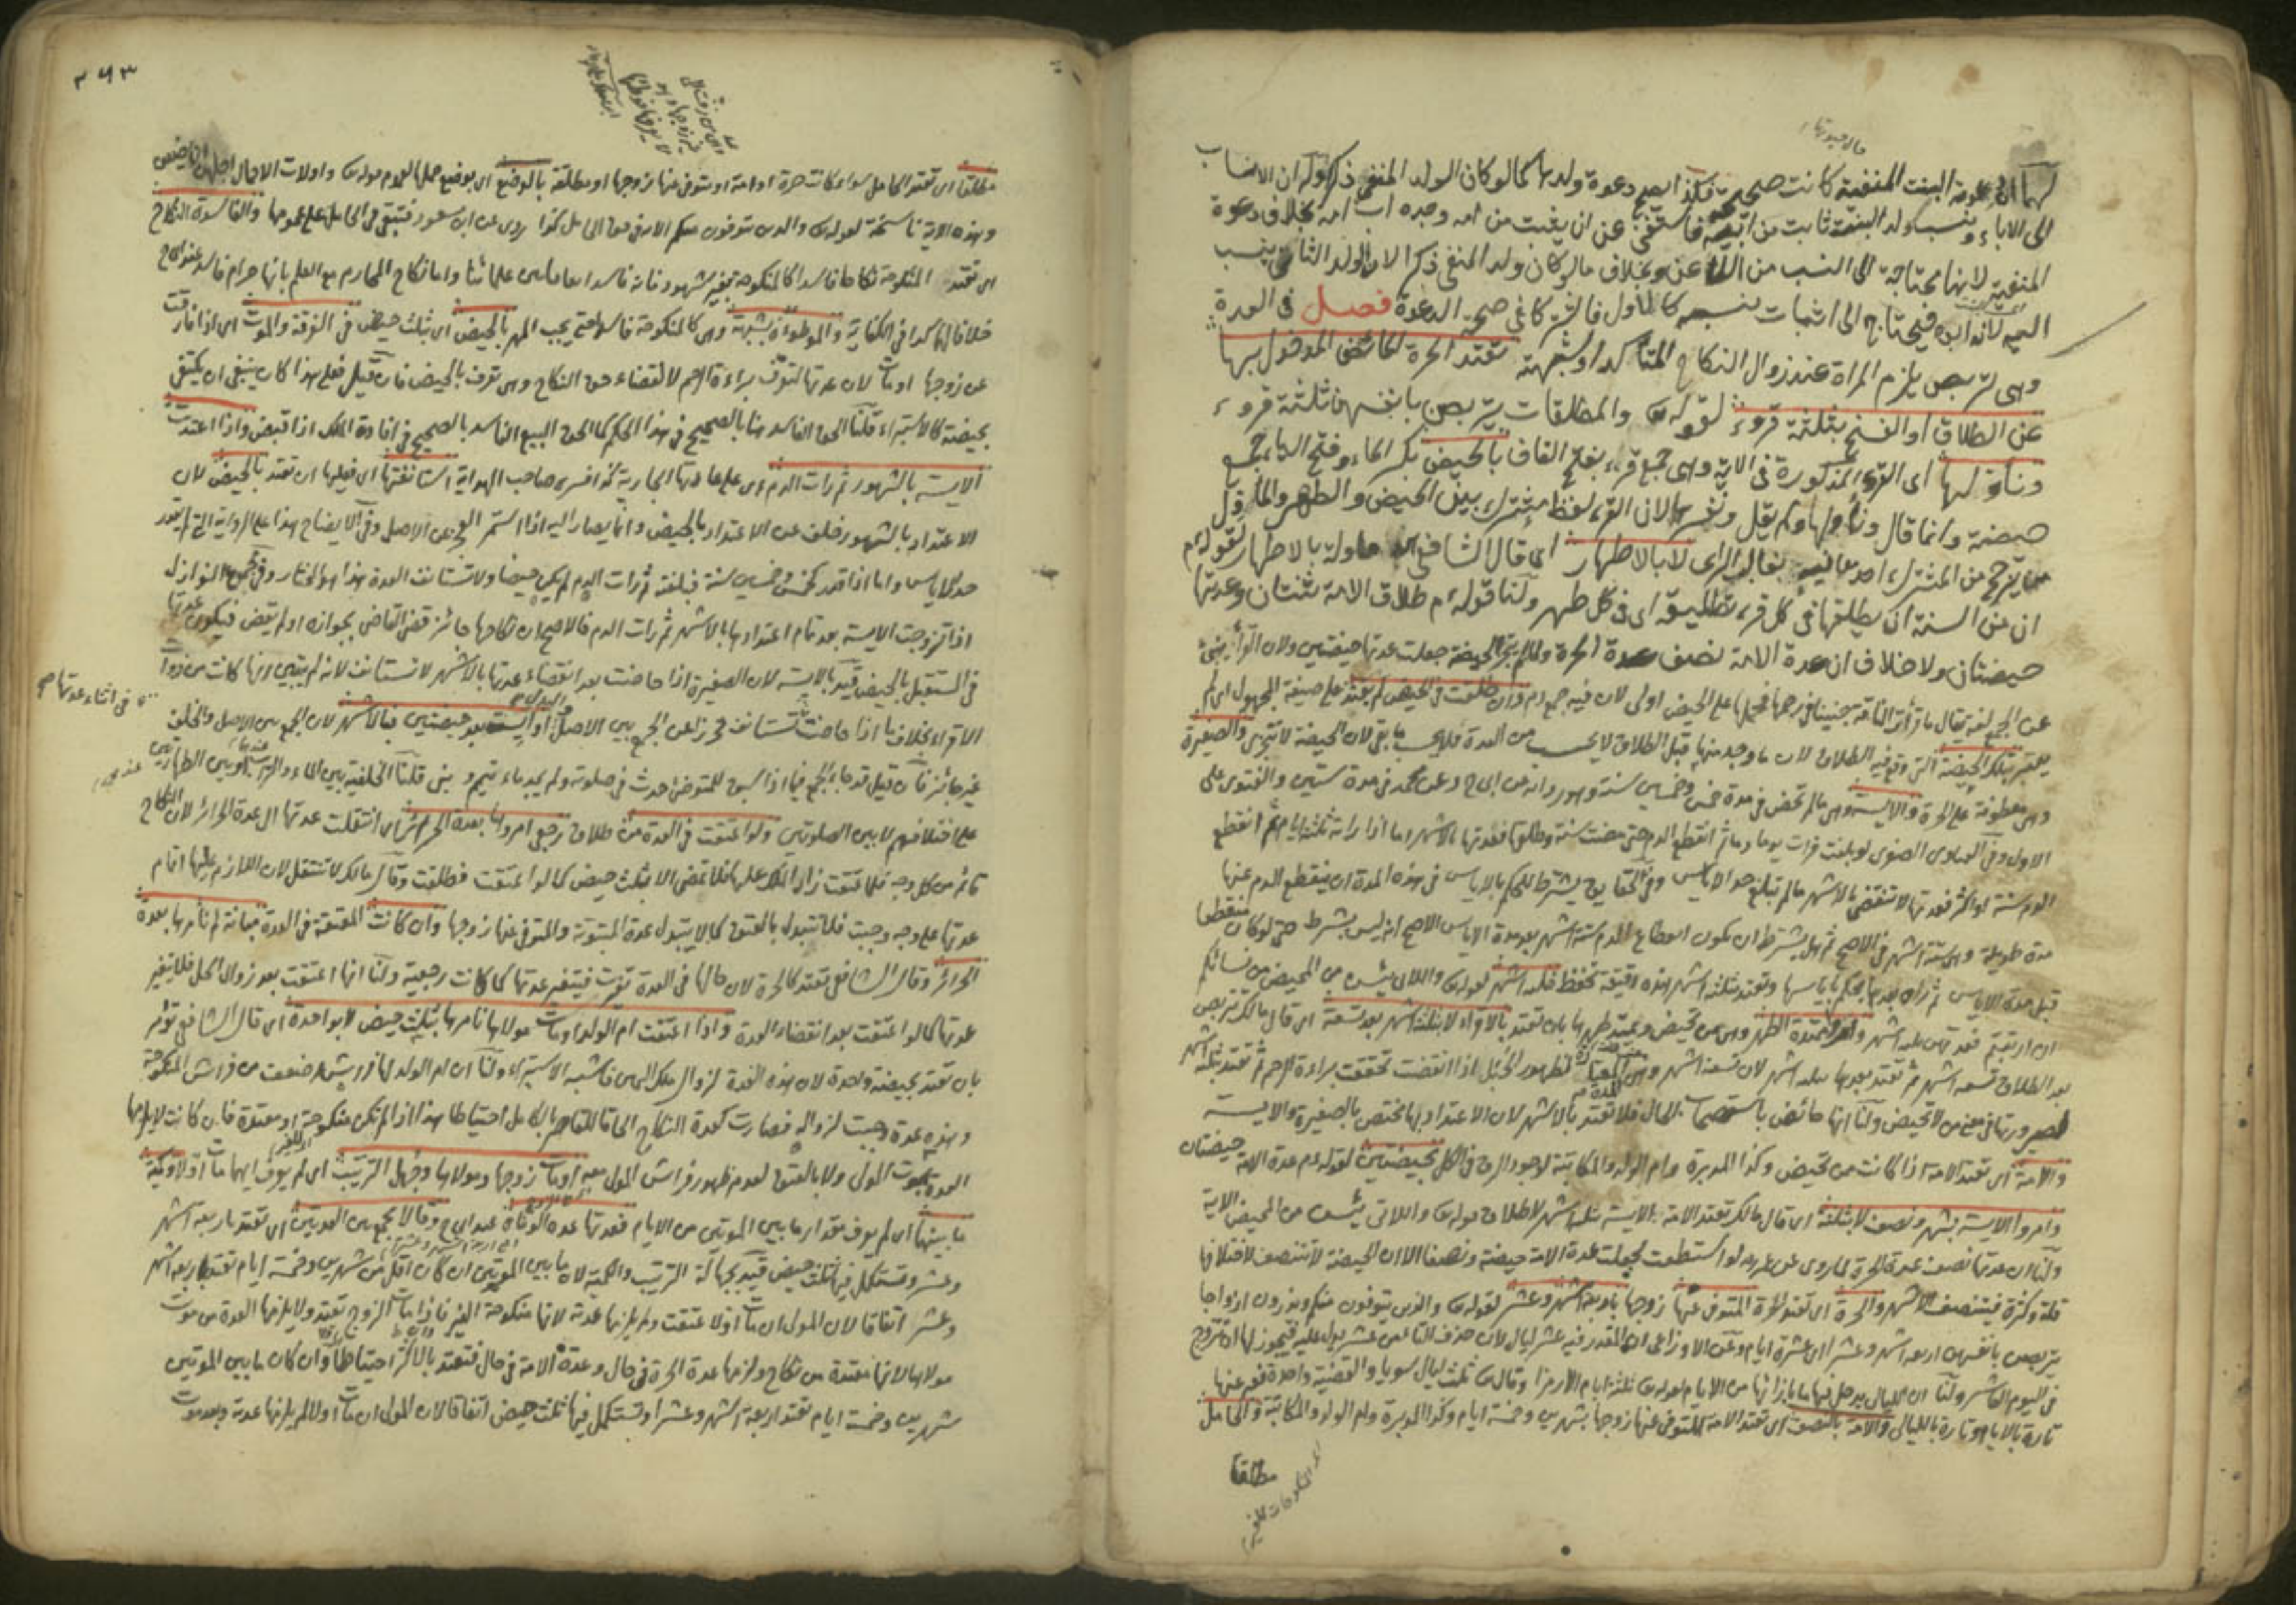 لهما ان دعوة البنت المنفية كانت صحيحة فكذا يصح دعوة ولدها كما لو كان الولد المنفي ذكرا وله ان الانساب
الى الاباء ونسب ولد البنت ثابت من ابيه فاستغنى عن ان يثبت من امه وجده اب امه بخلاف دعوة
المنفية لانها محتاجة الى النسب من الملاعن وبخلاف ما لو كان ولد المنفي ذكرا لان الولد الثاني ينسب
اليه لانه ابوه فيحتاج الى اثبات نسبه كالاول فافترقا في صحة الدعوة فصل في العدة
وهي تربص يلزم المراة عند زوال النكاح المتأكد او شبهته تعتد الحرة الحائض المدخول بها
عن الطلاق او الفسخ بثلثة قروء لقوله والمطلقات يتربصن بانفسهن ثلثة قروء
ونأولها اى القروء المذكورة في الاية وهى جمع قرء بفتح القاف بالحيض بكسر الحاء وفتح الياء جمع
حيضة وانما قال ونأولها ولم يقل ونفسرها لان القرء لفظ مشترك بين الحيض والطهر والمأول
ما ترجح من المشترك احد معانيه بغالب الراى لا بالاطهار اى قال الشافعي المراد بالاطهار لقوله م
ان من السنة ان يطلقها في كل قرء تطليقة اى في كل طهر ولنا قوله م طلاق الامة ثنتان وعدتها
حيضتان ولا خلاف ان عدة الامة نصف عدة الحرة ولما لم يتجز الحيضة جعلت عدتها حيضتين ولان القرء ينبئ
عن الجمع لغة يقال ما قرأت الناقة جنينا في رحمها فحملها على الحيض اولى لان فيه جمع دم وان طلقت في الحيض لم يعتد على صيغة المجهول اى لم
يعتبر بتلك الحيضة التي وقع فيه الطلاق لان ما وجد منها قبل الطلاق لا يحسب من العدة فلا يحسب ما بقى لان الحيضة لا تتجزى والصغيرة
وهي معطوفة على الحرة والايسة وهي ما لم تحض في مدة خمس وخمسين سنة وهو رواية عن ابى ح وعن محمد في مدة ستين والفتوى على
الاول وفي الفتاوى الصغرى لو بلغت فرات يوما دما ثم انقطع الدم حتى مضت سنة وطلقها فعدتها بالاشهر اما اذا رات ثلثة ايام ثم انقطع
الدم سنة او اكثر فعدتها لا تنقضي بالاشهر ما لم تبلغ حد الاياس وفي الحقايق يشترط للحكم بالاياس في هذه المدة ان ينقطع الدم عنها
مدة طويلة وهي ستة اشهر في الاصح ثم هل يشترط ان يكون انقطاع الدم ستة اشهر بعد مدة الاياس الاصح انه ليس بشرط حتى لو كان منقطعا
قبل مدة الاياس ثم تم مدة الاياس يحكم باياسها وتعتد بثلثة اشهر هذه دقيقة تحفظ ثلثة اشهر لقوله واللائى يئسن من المحيض من نسائكم
ان ارتبتم فعدتهن ثلثة اشهر وامروا ممتدة الطهر وهي من تحيض ويمتد طهرها بان تعتد بالاقراء لا بثلثة اشهر بعد تسعة اى قال مالك تتربص
بعد الطلاق تسعة اشهر ثم تعتد بعدها ثلثة اشهر لان تسعة اشهر وهى المدة المعتادة لظهور الحبل اذا انقضت تحققت براءة الرحم ثم تعتد بثلثة اشهر
لصيرورتها في معنى من لا تحيض ولنا انها حائض باستصحاب الحال فلا تعتد بالاشهر لان الاعتداد بها مختص بالصغيرة والايسة
والامة اى تعتد الامة اذا كانت ممن تحيض وكذا المدبرة وام الولد والمكاتبة لوجود الرق في الكل بحيضتين لقوله م عدة الامة حيضتان
وامروا الايسة بشهر ونصف لا بثلثة اى قال مالك تعتد الامة الايسة ثلثة اشهر لاطلاق قوله واللائى يئسن من المحيض الاية
ولنا ان عدتها نصف عدة الحرة لما روى عن عمر رض لو استطعت لجعلت عدة الامة حيضة ونصفا الا ان الحيضة لا تتنصف لاختلافها
قلة وكثرة فيتنصف الاشهر والحرة اى تعتد الحرة المتوفى عنها زوجها باربعة اشهر وعشر لقوله والذين يتوفون منكم ويذرون ازواجا
يتربصن بانفسهن اربعة اشهر وعشرا اى عشرة ايام وعن الاوزاعى ان المقدر فيه عشر ليال لان حذف التا من عشر يدل عليه فيجوز لها ان تتزوج
في اليوم العاشر ولنا ان الليال يدخل فيها ما بازائها من الايام لقوله ثلثة ايام الا رمزا وقال ثلث ليال سويا والقضية واحدة فعبر عنها
تارة بالايام وتارة بالليالى والامة بالنصف اى تعتد الامة المتوفى عنها زوجها بشهرين وخمسة ايام وكذا المدبرة وام الولد والمكاتبة والحامل
مطلقا
٣٩٣
مطلقا اى تعتد الحامل سواء كانت حرة او امة او متوفى عنها زوجها او مطلقة بالوضع اى بوضع حملها لعموم قوله واولات الاحمال اجلهن ان يضعن
وهذه الاية ناسخة لقوله والذين يتوفون منكم الاية في حق الحامل كذا روى عن ابن مسعود فتبقى في الحامل على عمومها والفاسدة النكاح
اى تعتد المنكوحة نكاحا فاسدا كالمنكوحة بغير شهود فانه فاسد اتفاقا بين علمائنا واما نكاح المحارم مع العلم بانها حرام فاسد عند ابى ح
خلافا لهما كذا في الكفاية والموطوءة بشبهة وهي كالمنكوحة فاسدا حتى يجب المهر بالحيض اى بثلث حيض في الفرقة والموت اى اذا فارقت
عن زوجها او مات لان عدتها لتعرف براءة الرحم لا لقضاء حق النكاح وهي تعرف بالحيض فان قيل فعلى هذا كان ينبغى ان يكتفى
بحيضة كالاستبراء قلنا الحق الفاسد هنا بالصحيح في هذا الحكم كما الحق البيع الفاسد بالصحيح في افادة الملك اذا قبض واذا اعتدت
الايسة بالشهور ثم رات الدم اى على عادتها الجارية كذا فسره صاحب الهداية استانفتها اى فعليها ان تعتد بالحيض لان
الاعتداد بالشهور خلف عن الاعتداد بالحيض وانما يصار اليه اذا استمر العجز عن الاصل وفي الايضاح هذا على الرواية التي لم تقدر
حد الاياس واما اذا قدر بخمس وخمسين سنة فبلغته ثم رات الدم لم يكن حيضا ولا تستانف العدة هذا هو المختار وفي مجموع النوازل
اذا تزوجت الايسة بعد تمام اعتدادها بالاشهر ثم رات الدم فالاصح ان نكاحها جائز قضى القاضي بجوازه او لم يقض فيكون عدتها
في المستقبل بالحيض قيد بالايسة لان الصغيرة اذا حاضت بعد انقضاء عدتها بالاشهر لا تستانف لانه لم يتبين انها كانت من ذوات
الاقراء بخلاف ما اذا حاضت في اثناء عدتها تستانف تحرزا عن الجمع بين الاصل والبدل او ايست بعد حيضتين فبالاشهر لان الجمع بين الاصل والخلف
غير جائز فان قيل قد جاء الجمع فيما اذا سبق للمتوضئ حدث في صلوته ولم يجد ماء تيمم وبنى قلنا الخلفية بين الماء والتراب او بين الطهارتين
على اختلافهم لا بين الصلوتين ولو اعتقت في العدة من طلاق رجعى امروها بعدة الحرائر اى انتقلت عدتها الى عدة الحرائر لان النكاح
قائم من كل وجه فلما عتقت زاد الملك عليها فلا تمضى الا بثلث حيض كما لو اعتقت فطلقت وقال مالك لا تنتقل لان اللازم عليها اتمام
عدتها على وجه وجبت فلا تتبدل بالعتق كما لا يتبدل عدة المبتوتة والمتوفى عنها زوجها وان كانت المعتقة في العدة مبانة لم نأمرها بعدة
الحرائر وقال الشافعي تعتد كالحرة لان حالها في العدة تغيرت فيتغير عدتها كما كانت رجعية ولنا انها اعتقت بعد زوال الحل فلا يتغير
عدتها كما لو اعتقت بعد انقضاء العدة واذا اعتقت ام الولد او مات مولاها نامرها بثلث حيض لا بواحدة اى قال الشافعي تؤمر
بان تعتد بحيضة واحدة لان هذه العدة لزوال ملك اليمين فاشبه الاستبراء ولنا ان ام الولد لها فراش اضعف من فراش المنكوحة
وهذه عدة وجبت لزواله فصارت كعدة النكاح الحاقا للقاصر بالكامل احتياطا هذا اذا لم تكن منكوحة او معتدة فان كانت لا يلزمها
العدة بموت المولى ولا بالعتق لعدم ظهور فراش المولى معه او مات زوجها ومولاها وجهل الترتيب اى لم يعرف ايهما مات اولا وكمية
ما بينهما اى لم يعرف مقدار ما بين الموتين من الايام فعدتها عدة الوفاة عند ابى ح وقالا يجمع بين العدتين اى تعتد باربعة اشهر
وعشر وتستكمل فيها ثلث حيض قيد بجهالة الترتيب والكمية لان ما بين الموتين ان كان اقل من شهرين وخمسة ايام تعتد باربعة اشهر
وعشر اتفاقا لان المولى ان مات اولا عتقت ولم يلزمها عدته لانها منكوحة الغير فاذا مات الزوج تعتد ولا يلزمها العدة من موت
مولاها لانها معتدة من نكاح ولزمها عدة الحرة في حال وعدة الامة في حال فتعتد بالاكثر احتياطا وان كان ما بين الموتين
شهرين وخمسة ايام تعتد اربعة اشهر وعشرا وتستكمل فيها ثلث حيض اتفاقا لان المولى ان مات اولا لم يلزمها عدته وبعد موت